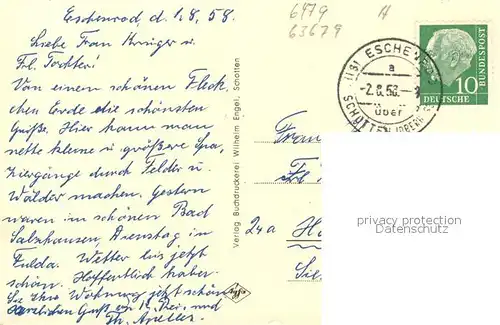 Eschenrod, d. 1.8.58.
Liebe Frau Krüger u.
Frl. Tochter!
Von einem schönen Fleck-
chen Erde die schönsten
Grüße. Hier kann man
nette kleine u. größere Spa-
ziergänge durch Felder u.
Wälder machen. Gestern
waren im schönen Bad
Salzhausen, Dienstag in
Fulda. Wetter bis jetzt
schön. Hoffentlich haben
Sie Ihre Wohnung jetzt schön
Herzlichen Gruß
6479
63679
Verlag Buchdruckerei Wilhelm Engel, Schotten
(16) ESCHENROD
a
-2.8.58.
über
SCHOTTEN
10
DEUTSCHE
BUNDESPOST
Frau
Frl
24a
privacy protection
Datenschutz